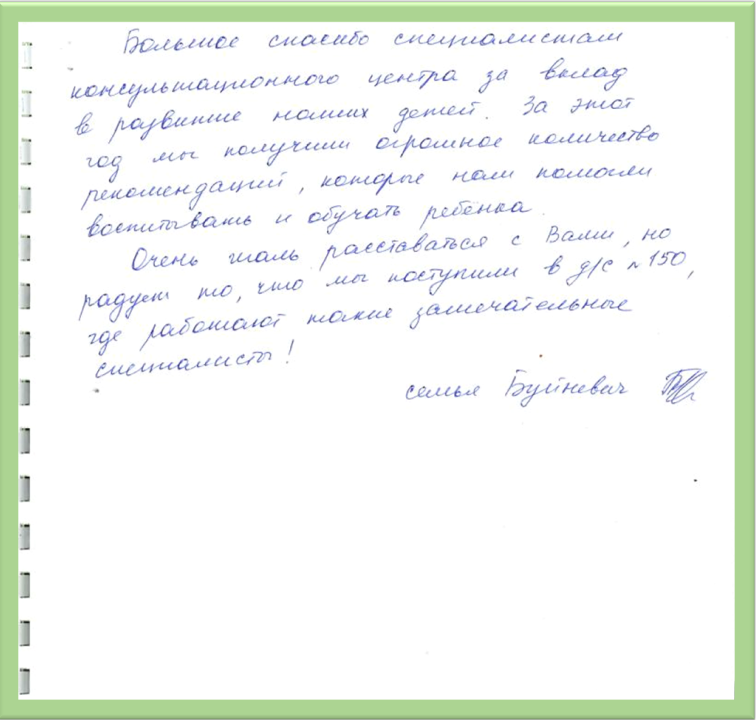 Большое спасибо специалистам
консультационного центра за вклад
в развитие наших детей. За этот
год мы получили огромное количество
рекомендаций, которые нам помогли
воспитывать и обучать ребёнка.
Очень жаль расставаться с Вами, но
радует то, что мы поступили в д/с №150,
где работают такие замечательные
специалисты!
семья Буйневич